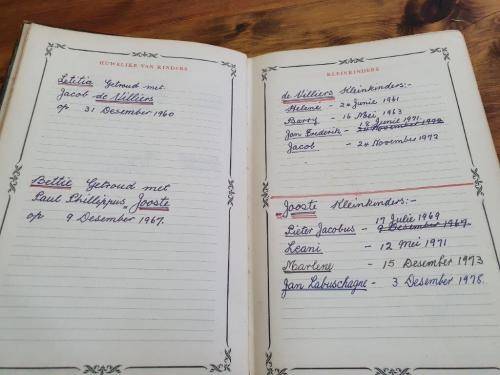 HUWELIKE VAN KINDERS
Letitia Getroud met
Jacob de Villiers
op 31 Desember 1960
Bettie Getroud met
Paul Phillippus Jooste
op 9 Desember 1967.
KLEINKINDERS
de Villiers Kleinkinders:-
Helene - 20 Junie 1961
Barry - 16 Mei, 1963
18 Junie 1971
Jan Frederik - November
Jacob - 20 November 1972
Jooste Kleinkinders:-
17 Julie 1969
Pieter Jacobus - 9 Desember 1967.
Leani - 12 Mei 1971
Marlene - 15 Desember 1973
Jan Labuschagne - 3 Desember 1978.